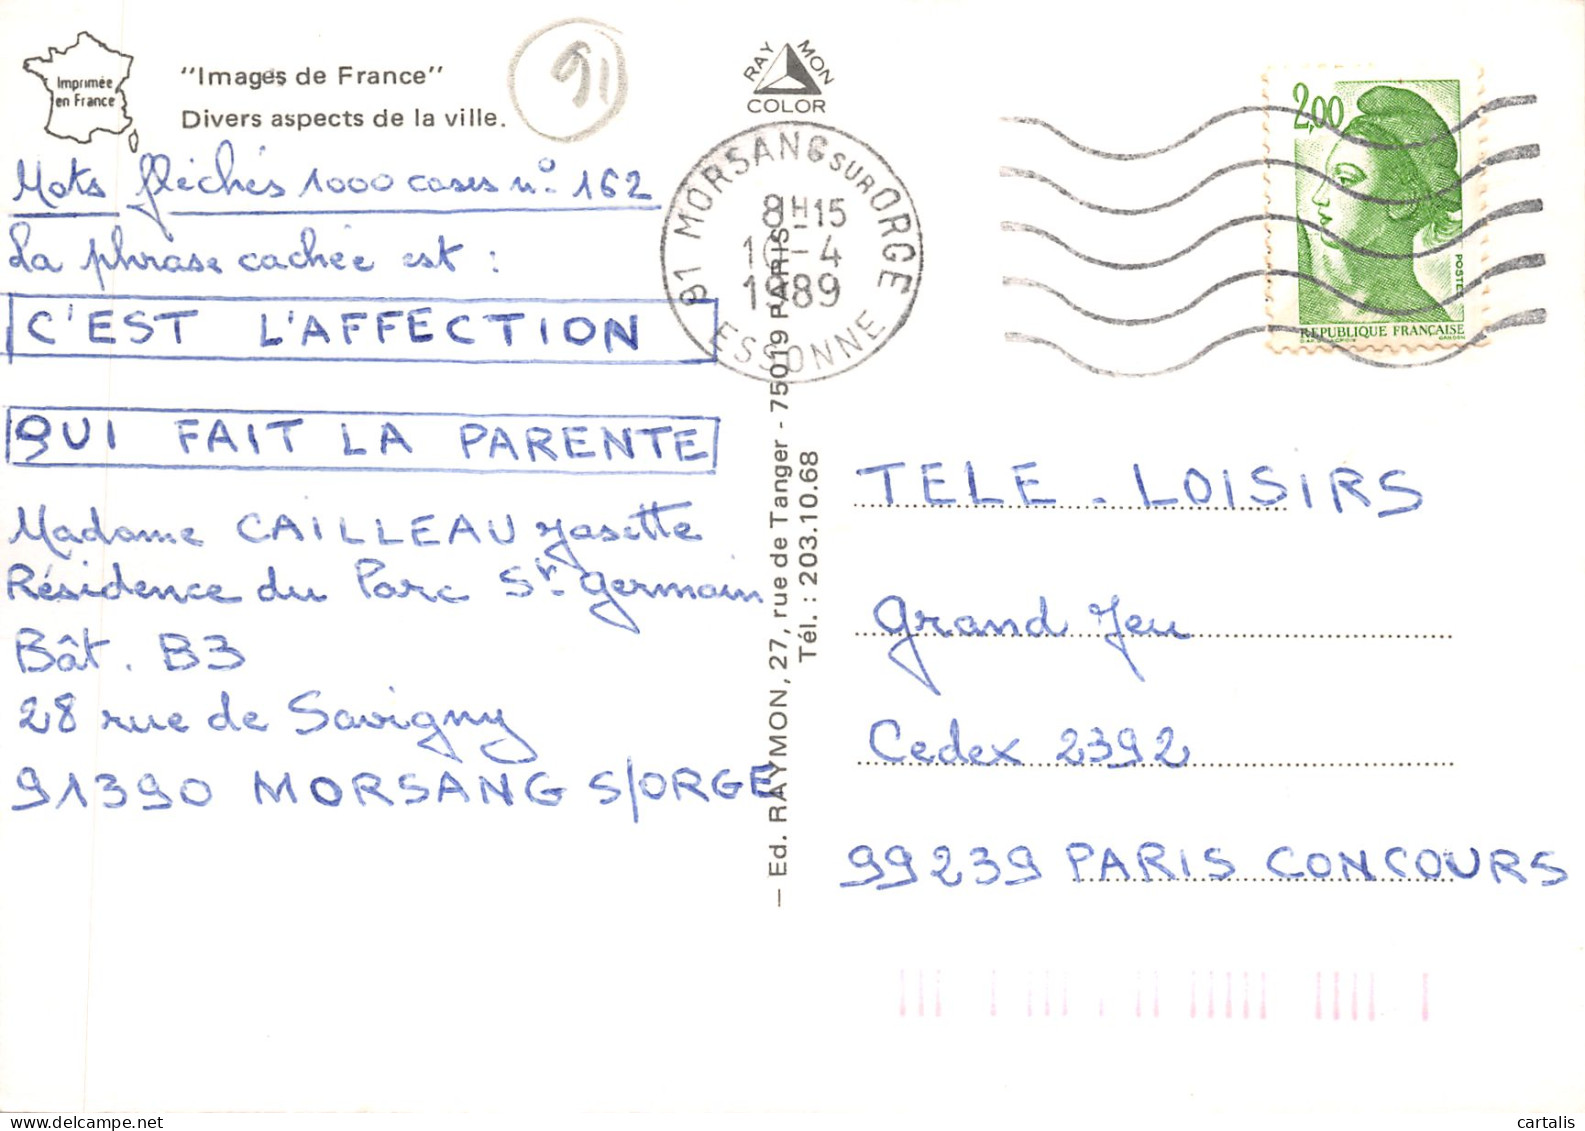 Imprimée
en France
"Images de France"
Divers aspects de la ville.
91
RAYMON
COLOR
Mots fléchés 1000 cases n° 162
La phrase cachée est :
C'EST L'AFFECTION
QUI FAIT LA PARENTE
Madame CAILLEAU Josette
Résidence du Parc St. Germain
Bât. B3
28 rue de Savigny
91390 MORSANG S/ORGE
91 MORSANG SUR ORGE
8H15
-4
1989
ESSONNE
— Ed. RAYMON, 27, rue de Tanger - 75019 PARIS -
Tél. : 203.10.68
2,00
POSTES
REPUBLIQUE FRANÇAISE
GANDON
TELE - LOISIRS
Grand Jeu
Cedex 2392
99239 PARIS CONCOURS
cartalis